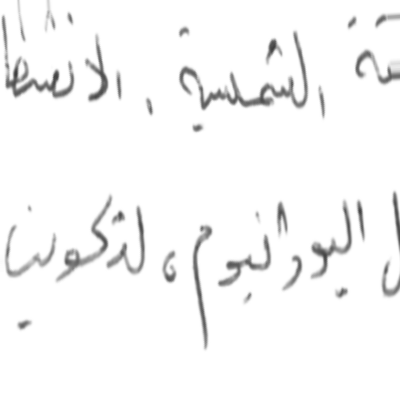 الشمسية. الانشطا
اليورانيوم، لتكوين